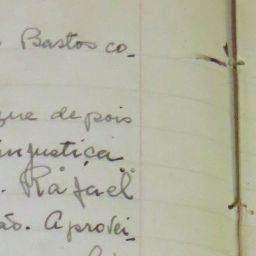 Bastos co-
que depois
injustiça
. Rafael
ão. Aprovei-